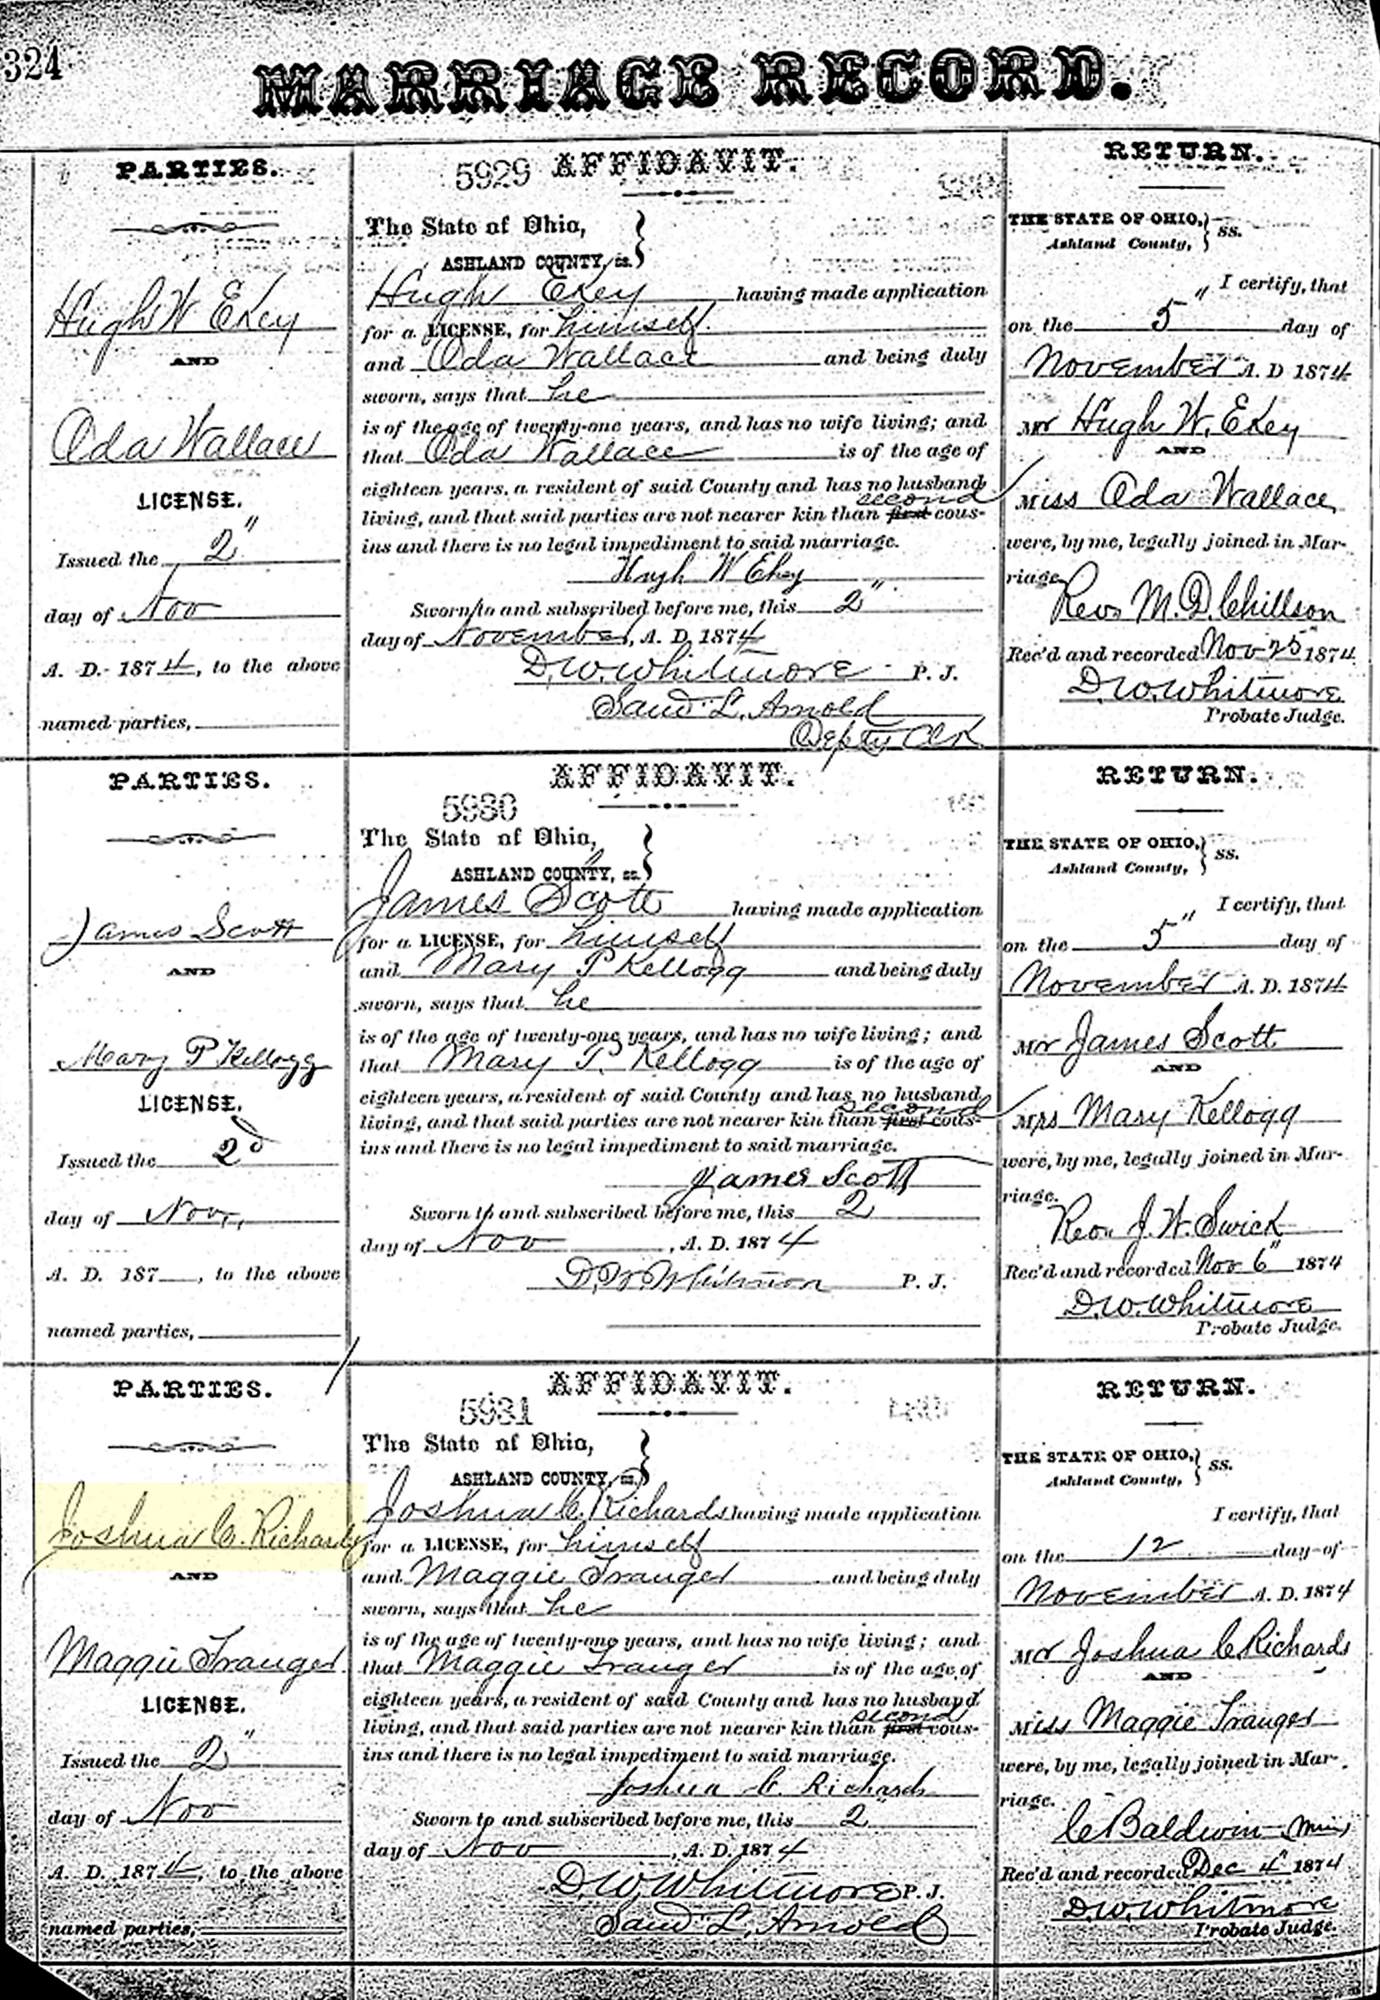 324
MARRIAGE RECORD.
PARTIES.
Hugh W Ekey
AND
Oda Wallace
LICENSE.
Issued the 2"
day of Nov
A. D. 1874, to the above
named parties,
5929 AFFIDAVIT.
The State of Ohio,
ASHLAND COUNTY, ss.
Hugh Ekey having made application
for a LICENSE, for himself
and Oda Wallace and being duly
sworn, says that he
is of the age of twenty-one years, and has no wife living; and
that Oda Wallace is of the age of
eighteen years, a resident of said County and has no husband
second
living, and that said parties are not nearer kin than first cous-
ins and there is no legal impediment to said marriage.
Hugh W Ekey
Sworn to and subscribed before me, this 2"
day of November, A. D. 1874
D. W. Whitmore P. J.
Saml L. Arnold
Depty Clk
RETURN.
THE STATE OF OHIO,
Ashland County, ss.
I certify, that
on the 5" day of
November A. D 1874
Mr Hugh W. Ekey
AND
Miss Oda Wallace
were, by me, legally joined in Mar-
riage.
Rev. M. D. Chillson
Rec'd and recorded Nov 25 1874
D. W. Whitmore
Probate Judge.
PARTIES.
James Scott
AND
Mary P Kellogg
LICENSE.
Issued the 2d
day of Nov,
A. D. 187 , to the above
named parties,
AFFIDAVIT.
5930
The State of Ohio,
ASHLAND COUNTY, ss.
James Scott having made application
for a LICENSE, for himself
and Mary P Kellogg and being duly
sworn, says that he
is of the age of twenty-one years, and has no wife living; and
that Mary P. Kellogg is of the age of
eighteen years, a resident of said County and has no husband
second
living, and that said parties are not nearer kin than first cous-
ins and there is no legal impediment to said marriage.
James Scott
Sworn to and subscribed before me, this 2
day of Nov , A. D. 1874
D. W. Whitmore P. J.
RETURN.
THE STATE OF OHIO,
Ashland County, ss.
I certify, that
on the 5" day of
November A. D. 1874
Mr James Scott
AND
Mrs Mary Kellogg
were, by me, legally joined in Mar-
riage.
Rev. J. W. Swick
Rec'd and recorded Nov 6" 1874
D. W. Whitmore
Probate Judge.
PARTIES.
Joshua C. Richards
AND
Maggie Trauger
LICENSE.
Issued the 2"
day of Nov
A. D. 1874, to the above
named parties,
AFFIDAVIT.
5931
The State of Ohio,
ASHLAND COUNTY, ss.
Joshua C. Richards having made application
for a LICENSE, for himself
and Maggie Trauger and being duly
sworn, says that he
is of the age of twenty-one years, and has no wife living; and
that Maggie Trauger is of the age of
eighteen years, a resident of said County and has no husband
second
living, and that said parties are not nearer kin than first cous-
ins and there is no legal impediment to said marriage.
Joshua C. Richards
Sworn to and subscribed before me, this 2
day of Nov , A. D. 1874
D. W. Whitmore P. J.
Saml L. Arnold
RETURN.
THE STATE OF OHIO,
Ashland County, ss.
I certify, that
on the 12 day of
November A. D. 1874
Mr Joshua C Richards
AND
Miss Maggie Trauger
were, by me, legally joined in Mar-
riage.
C Baldwin Min
Rec'd and recorded Dec 4" 1874
D. W. Whitmore
Probate Judge.